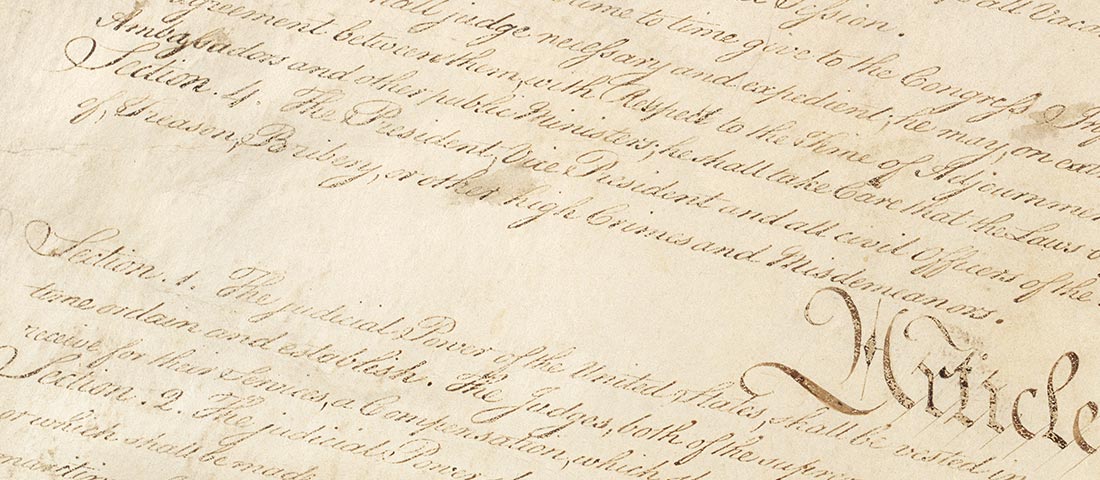 Session.
shall judge necessary and expedient; he may, on
time to time give to the Congress
agreement between them, with Respect to the Time of Adjournment
Ambassadors and other public Ministers; he shall take Care that the Laws
Section. 4. The President, Vice President and all civil Officers of the
of, Treason, Bribery, or other high Crimes and Misdemeanors.
Article
Section. 1. The judicial Power of the United States, shall be vested in
time ordain and establish. The Judges, both of the supreme
receive for their Services, a Compensation, which
Section. 2. The judicial Power
or which shall be made